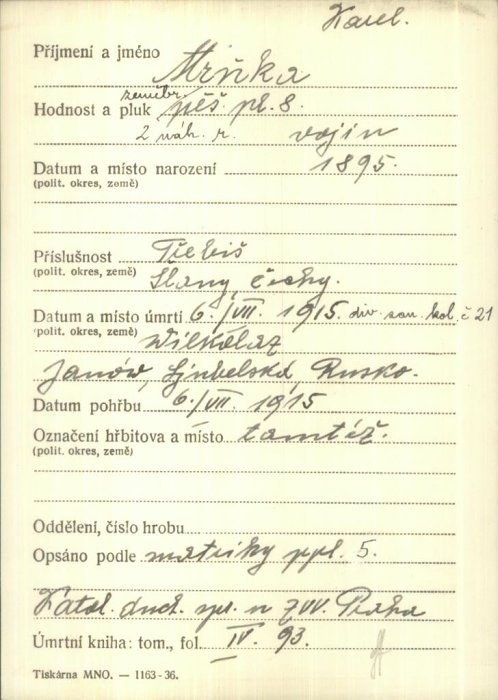 Karel.
Příjmení a jméno Mrňka
zeměbr.
Hodnost a pluk pěš. pl. 8.
2 náh. r. vojín
Datum a místo narození 1895.
(polit. okres, země)
Příslušnost Třebíš
(polit. okres, země) Slaný, Čechy.
Datum a místo úmrtí 6./VII. 1915. div. san. kol. č 21
(polit. okres, země) Wilkolaz
Janów, Ljubelská, Rusko.
Datum pohřbu 6./VII. 1915
Označení hřbitova a místo tamtéž.
(polit. okres, země)
Oddělení, číslo hrobu
Opsáno podle matriky ppl. 5.
Katol. duch. spr. u ZVV. Praha
Úmrtní kniha: tom., fol. IV. 93.
Tiskárna MNO. — 1163-36.